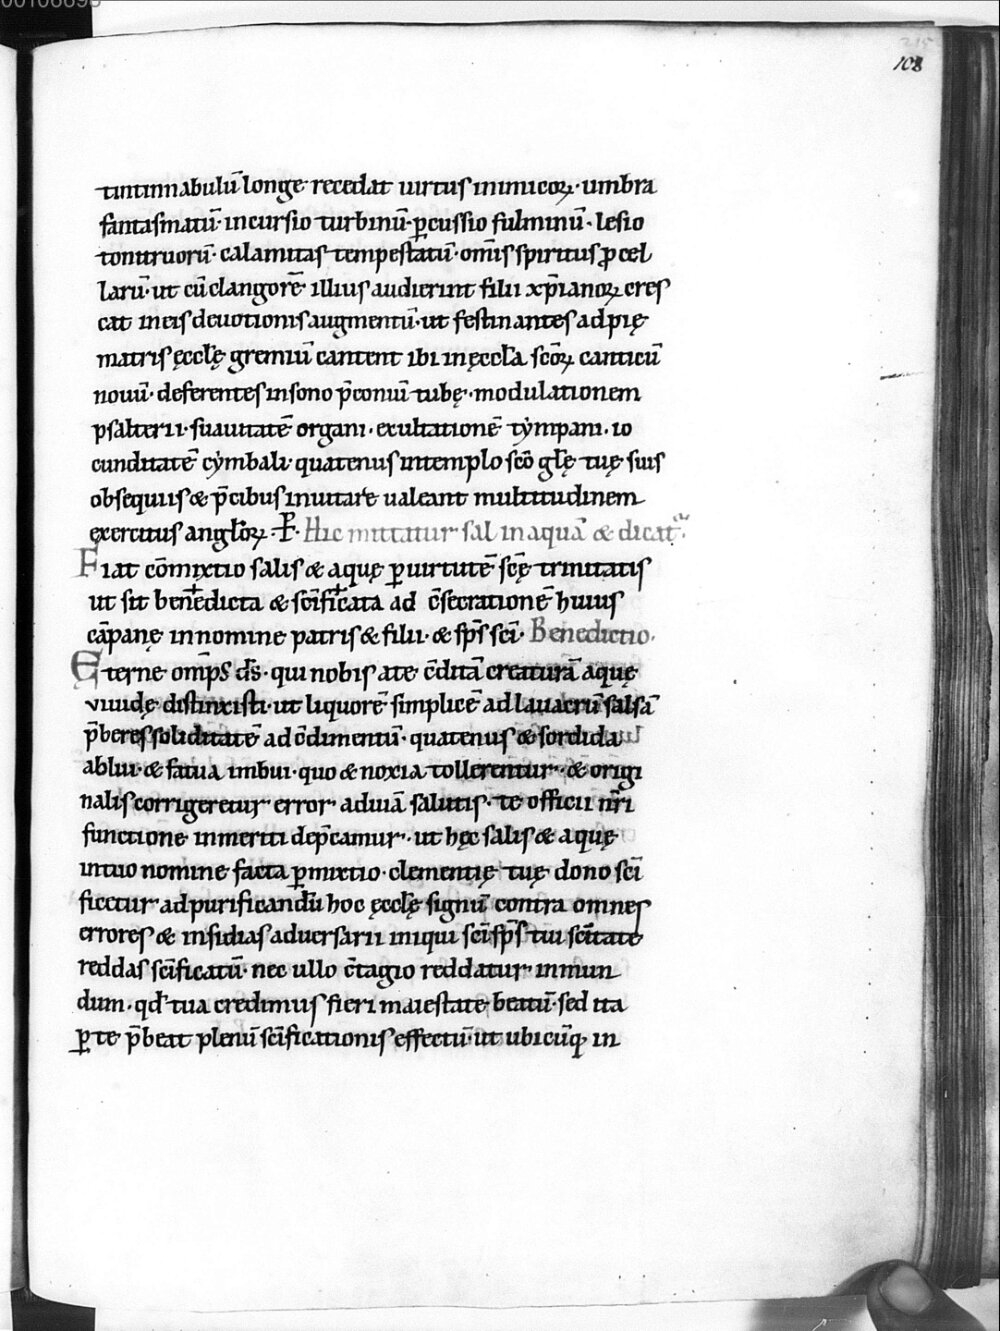 00106698
215
108
tintinnabulū longe recedat uirtus inimicoꝝ· umbra
fantasmatū· incursio turbinū· ꝑcussio fulminū· lesio
tonitruorū· calamitas tempestatū· om̄is spiritus ꝓcel
larū· ut cū clangorē illius audierint filii xp̄ianoꝝ cres
cat in eis deuotionis augmentū· ut festinantes ad pię
matris ęcclę̄ gremiū cantent ibi in ęccl̄a sc̄oꝝ canticū
nouū· deferentes in sono p̄conuī tubę· modulationem
psalterii· suauitatē organi· exultationē tẏmpani· io
cunditatē cẏmbali· quatenus in templo sc̄ō gl̄ę tuę suis
obsequiis & p̄cibus inuitare ualeant multitudinem
exercitus angl̄oꝝ· P̄· Hic mittatur sal in aquā & dicat̄·
Fiat cōmixtio salis & aquę ꝑ uirtutē sc̄ę trinitatis
ut sit bene✝dicta & sc̄ifi✝cata ad c̄secrationē huius
cāpanę in nomine patris & filii· & sp̄s sc̄i· Benedictio·
Eterne om̄ps d̄s· qui nobis a te c̄ditā creaturā aquę
uiuidę distinxisti· ut liquorē simplicē ad lauacrū salsā
p̄beres soliditatē ad c̄dimentū· quatenus & sordida
ablui· & fatua imbui· quo & noxia tollerentur· & origi
nalis corrigeretur error ad uiā salutis· te officii n̄ri
functione inmeriti dep̄camur· ut hęc salis & aquę
in tuo nomine facta ꝑmixtio· clementię tuę dono sc̄i
ficetur ad purificandū hoc ęcclę̄ signū contra omnes
errores & insidias aduersarii iniqui sc̄i sp̄s tui sc̄itate
reddas sc̄ificatū· nec ullo c̄tagio reddatur inmun
dum· qd̄ tua credimus fieri maiestate beatū· sed ita
ꝑ te p̄beat plenū sc̄ificationis effectū· ut ubicūq; in